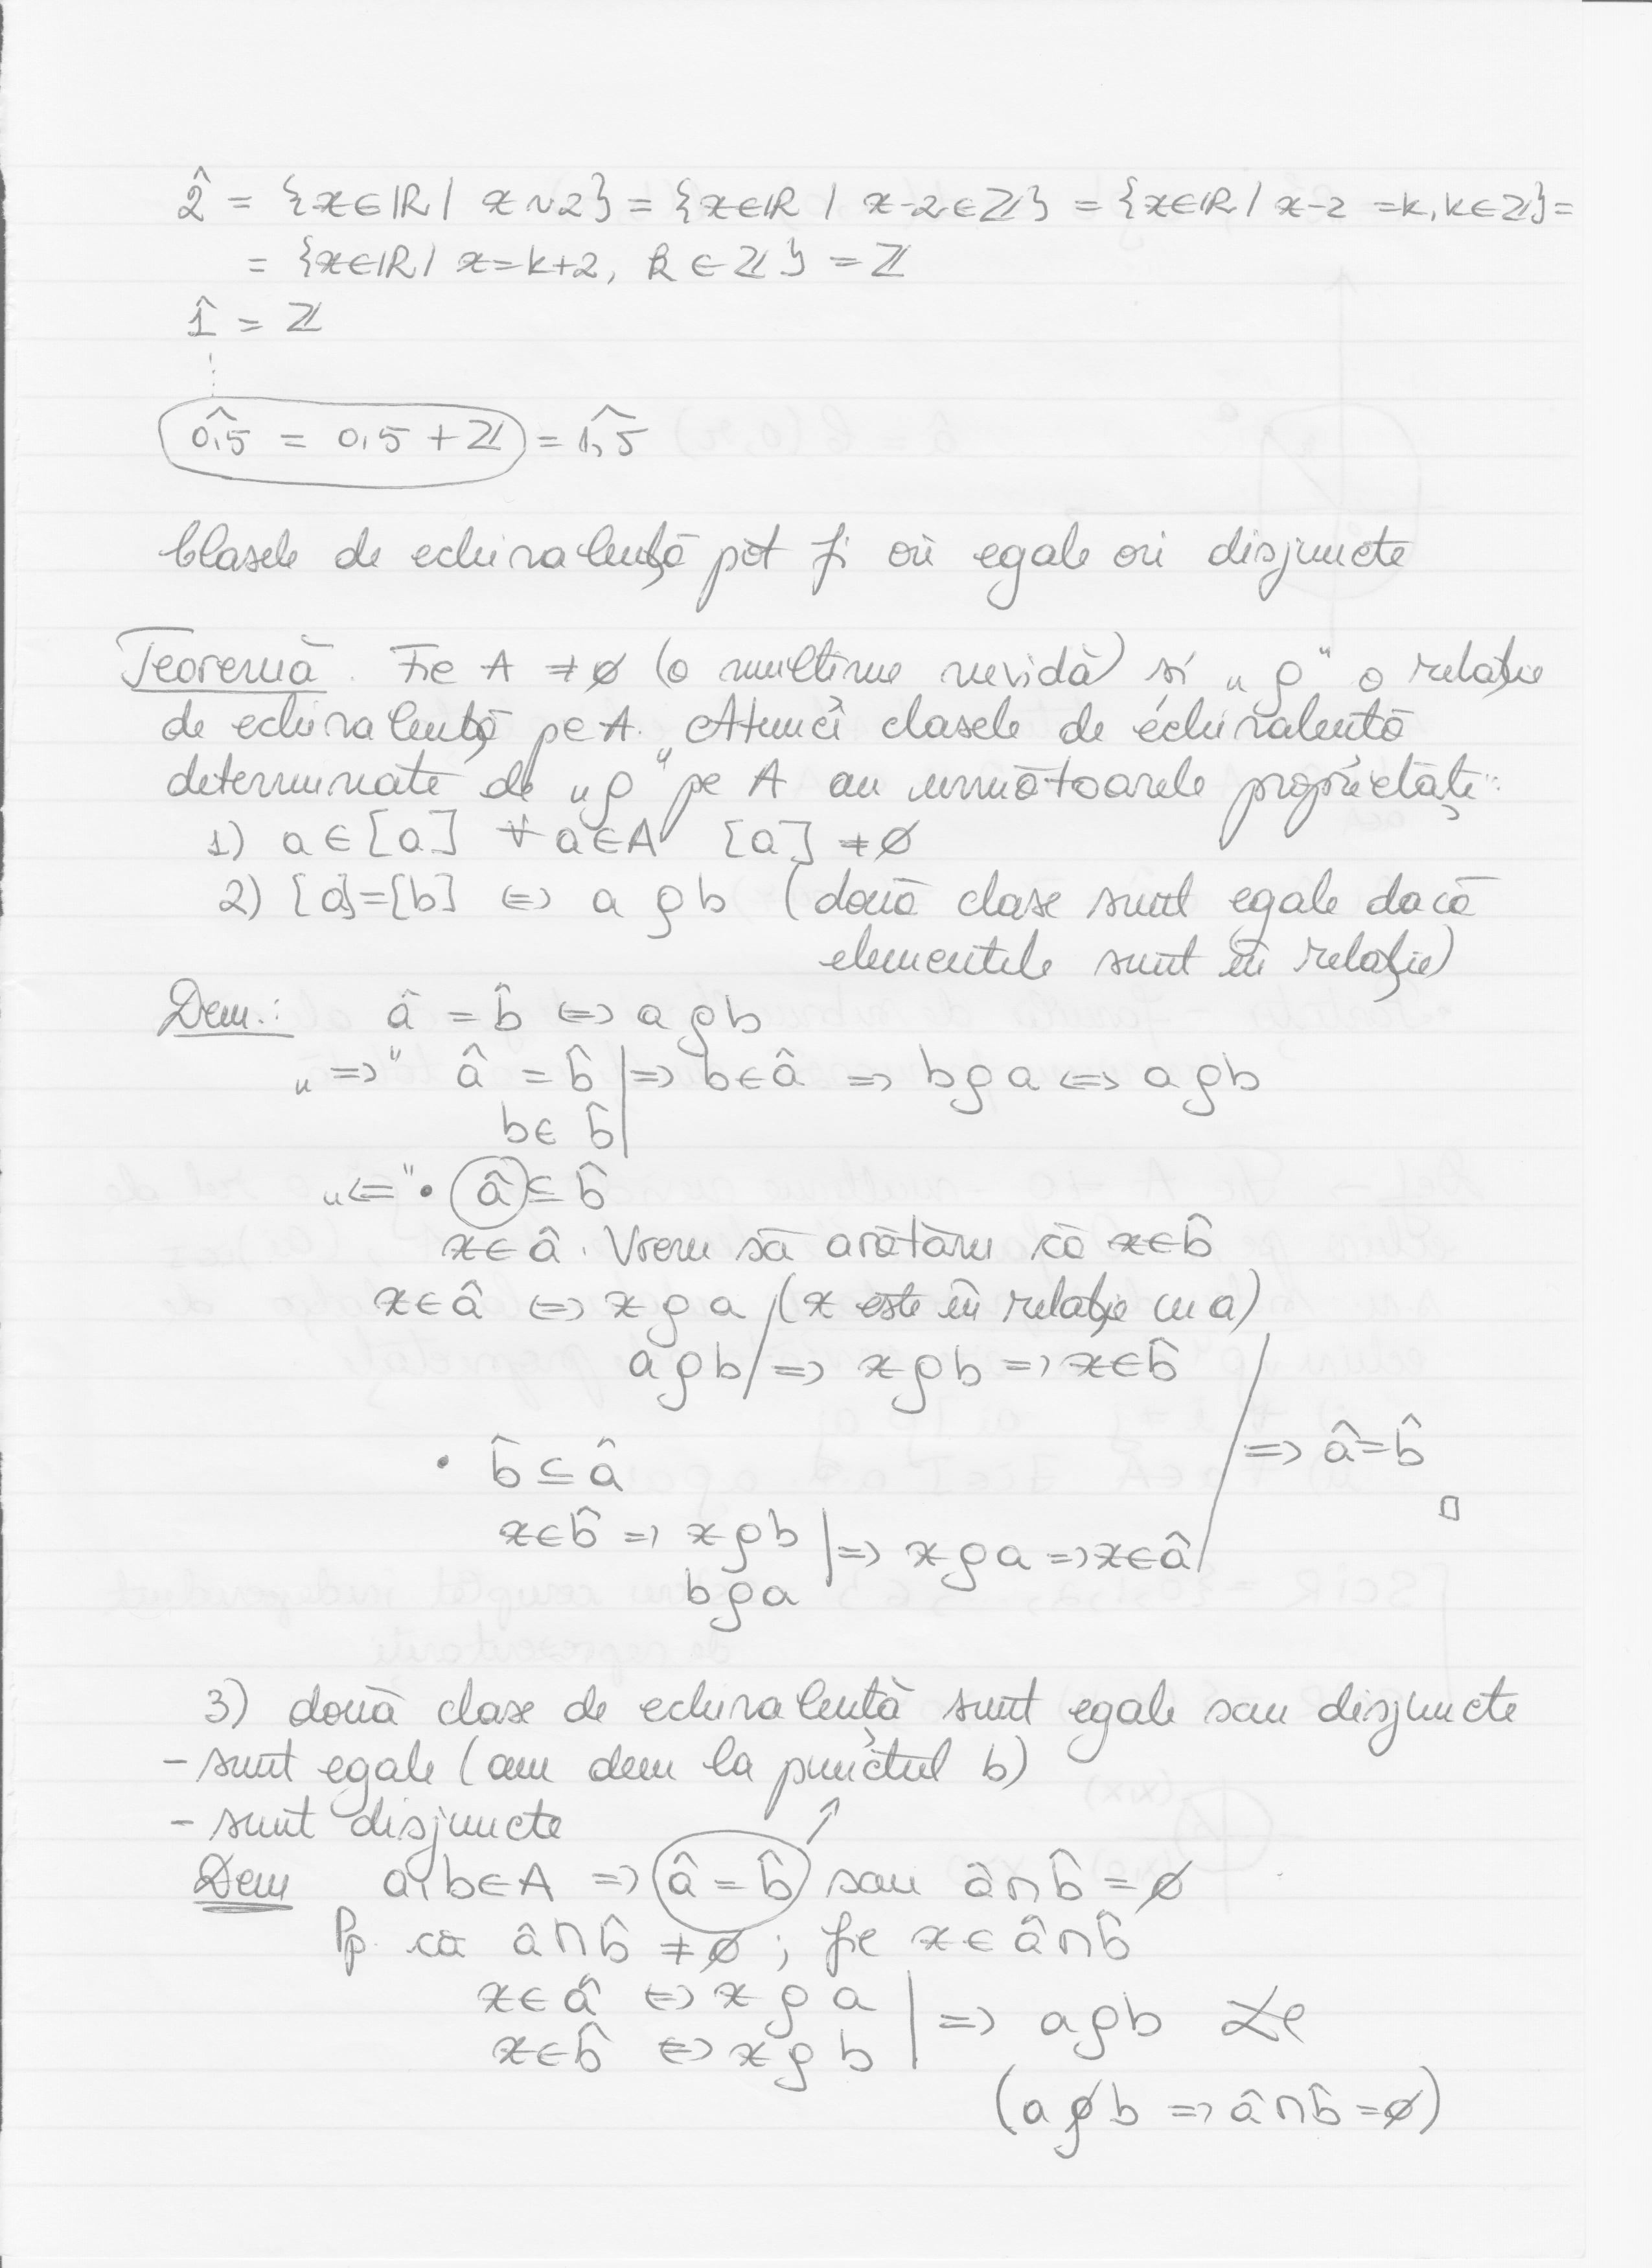 2̂ = {x∈ℝ / x∼2} = {x∈ℝ / x-2∈ℤ} = {x∈ℝ / x-2 =k, k∈ℤ} =
= {x∈ℝ / x=k+2, k∈ℤ} = ℤ
1̂ = ℤ
⋮
0,5̂ = 0,5 + ℤ = 1,5̂
Clasele de echivalență pot fi ori egale ori disjuncte
Teoremă. Fie A ≠ ∅ (o multime nevidă) si „ρ" o relație
de echivalență pe A. Atunci clasele de echivalentă
determinate de „ρ" pe A au următoarele proprietăți:
1) a∈[a] ∀ a∈A [a] ≠ ∅
2) [a]=[b] ⇔ a ρ b (două clase sunt egale dacă
elementele sunt în relație)
Dem.: â = b̂ ⇔ a ρ b
„⇒" â = b̂ | ⇒ b∈â ⇒ b ρ a ⇔ a ρ b
b∈ b̂ |
„⇐" • â ⊆ b̂
x∈ â. Vrem să arătăm că x∈b̂
x∈â ⇔ x ρ a / (x este în relație cu a)
a ρ b / ⇒ x ρ b ⇒ x∈b̂
• b̂ ⊆ â / ⇒ â=b̂
□
x∈b̂ ⇒ x ρ b | ⇒ x ρ a ⇒ x∈â
b ρ a
3) două clase de echivalență sunt egale sau disjuncte
- sunt egale (am dem la punctul b)
- sunt disjuncte
Dem a, b∈A ⇒ â = b̂ sau â∩b̂ = ∅
Pp. că â∩b̂ ≠ ∅ ; fie x∈ â∩b̂
x∈ â ⇔ x ρ a | ⇒ a ρ b
x∈b̂ ⇔ x ρ b |
(a ρ̸ b ⇒ â∩b̂ = ∅)